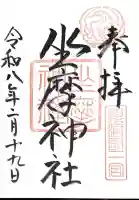 奉拝
坐摩神社
令和八年二月十九日